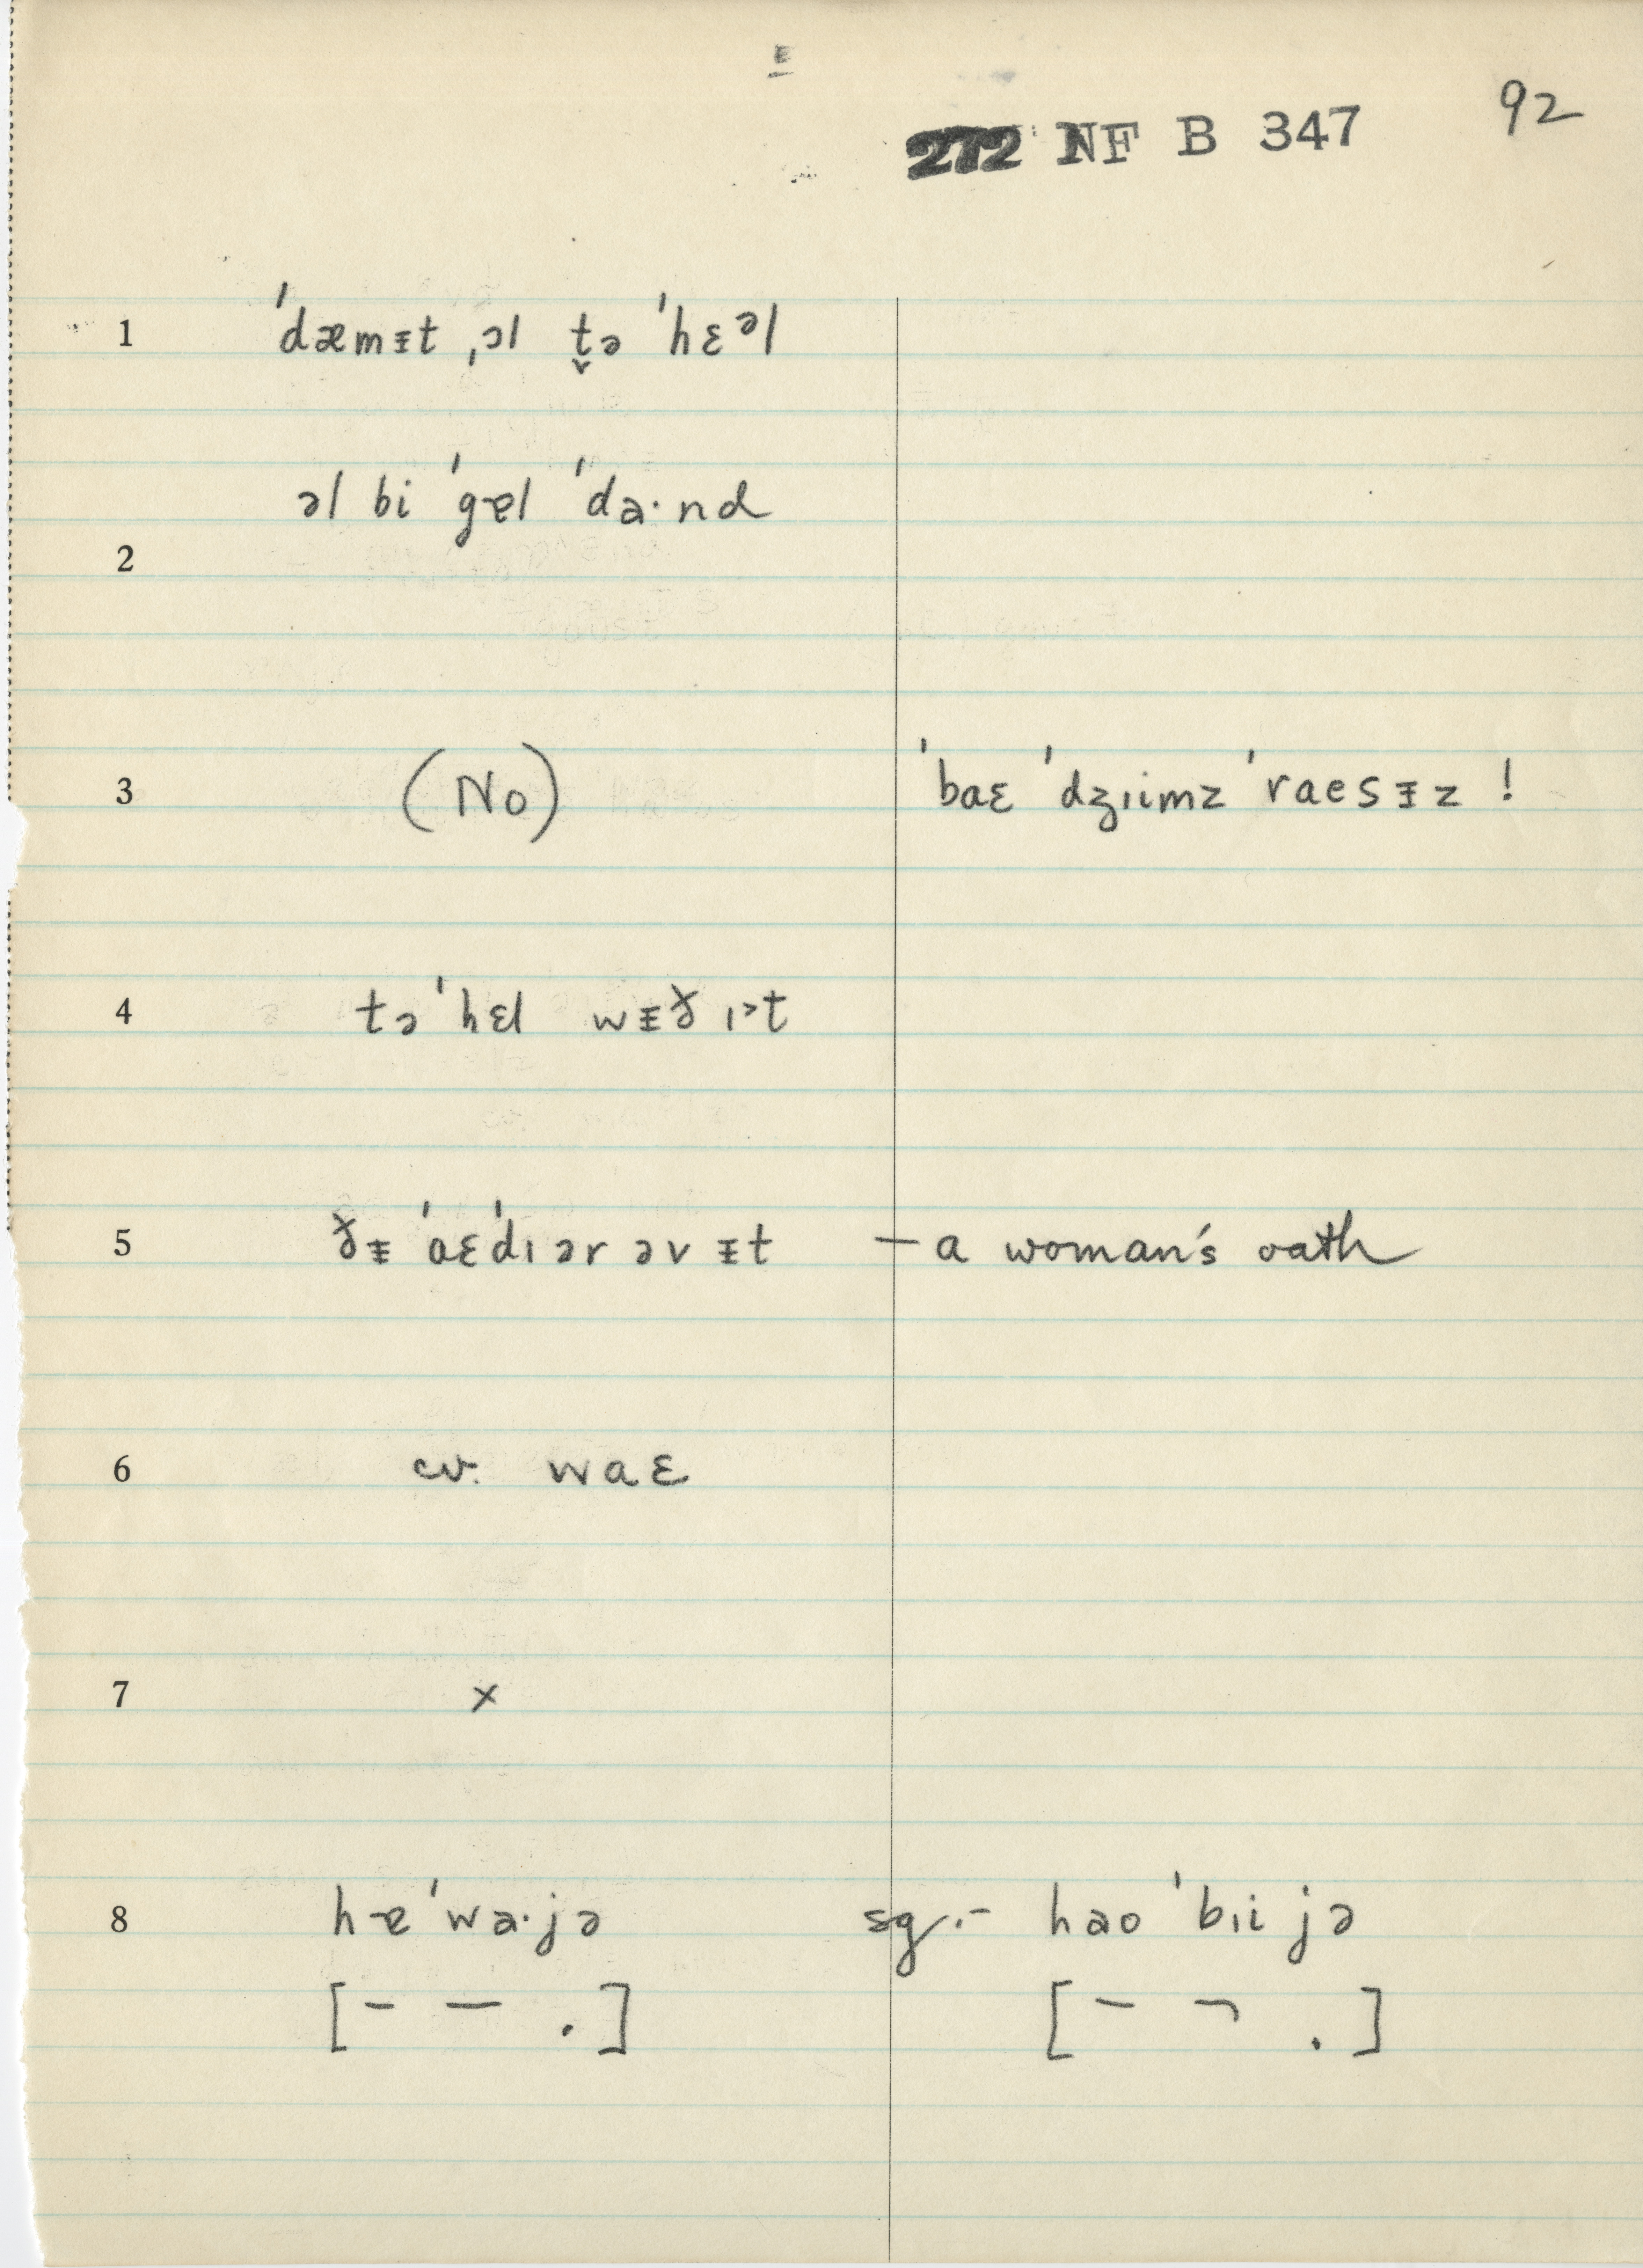 272 NF B 347 92
1 ˈdæmᵻt ˌɔl t̬ə ˈhɛᵊl
2 əl bi ˈgɐl ˈdɑ·nd
3 (No) ˈbaɛ ˈdʒɪimz ˈraesᵻz !
4 təˈhɛl wᵻð ɪ˃t
5 ðᵻ ˈaɛˈdɪər əv ᵻt – a woman's oath
6 cv. waɛ
7 x
8 hɐˈwɑ·jə sg.- haoˈbɪijə
[– – .] [– ¬ .]